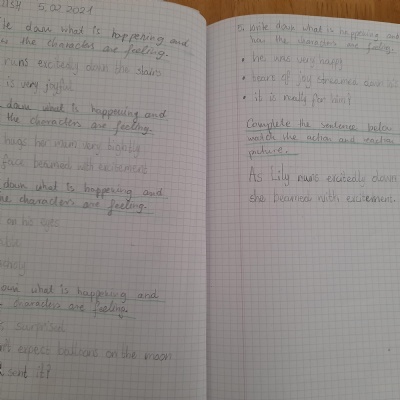 5.02.2021
down what is happening and
the characters are feeling.
runs excitedly down the stairs
is very joyful
down what is happening and
the characters are feeling.
hugs her mum very
face beamed with excitement
down what is happening and
the characters are feeling.
on his eyes
down what is happening and
characters are feeling.
surprised
expect balloons on the moon
sent it?
5. write down what is happening and
how the characters are feeling.
• he was very happy
• tears of joy streamed down
• it is really for him?
Complete the sentence below
match the action and
picture.
As Lily runs excitedly down
she beamed with excitement.